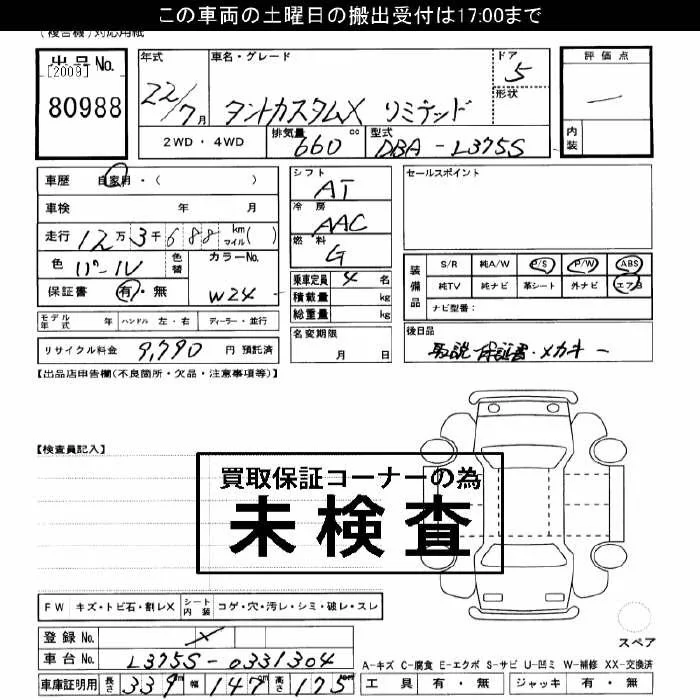 この車両の土曜日の搬出受付は17:00まで
(複合機)対応用紙
出品No.
[2009]
80988
年式
22/7月
車名・グレード
タントカスタムX リミテッド
ドア
5
形状
評価点
—
内装
2WD・4WD
排気量
660cc
型式
DBA-L375S
車歴 自家用・( )
車検 年 月
走行 12万3千688 km マイル( )
色 パール
色替
カラーNo.
W24
保証書 有・無
モデル年式 年 ハンドル 左・右 ディーラー・並行
リサイクル料金 9,790 円 預託済
シフト
AT
冷房
AAC
燃料
G
乗車定員 4 名
積載量 kg
総重量 kg
名変期限
月 日
セールスポイント
装備品
S/R 純A/W P/S P/W ABS
純TV 純ナビ 革シート 外ナビ エアB
ナビ型番:
後日品
取説 保証書・メカキー
【出品店申告欄(不良箇所・欠品・注意事項等)】
【検査員記入】
買取保証コーナーの為
未検査
FW キズ・トビ石・割レX
シート内装 コゲ・穴・汚レ・シミ・破レ・スレ
登録No. X
車台No. L375S-0331304
車庫証明用 長さ 339cm 幅 147cm 高さ 175cm
スペア
A-キズ C-腐食 E-エクボ S-サビ U-凹ミ W-補修 XX-交換済
工具 有・無 ジャッキ 有・無